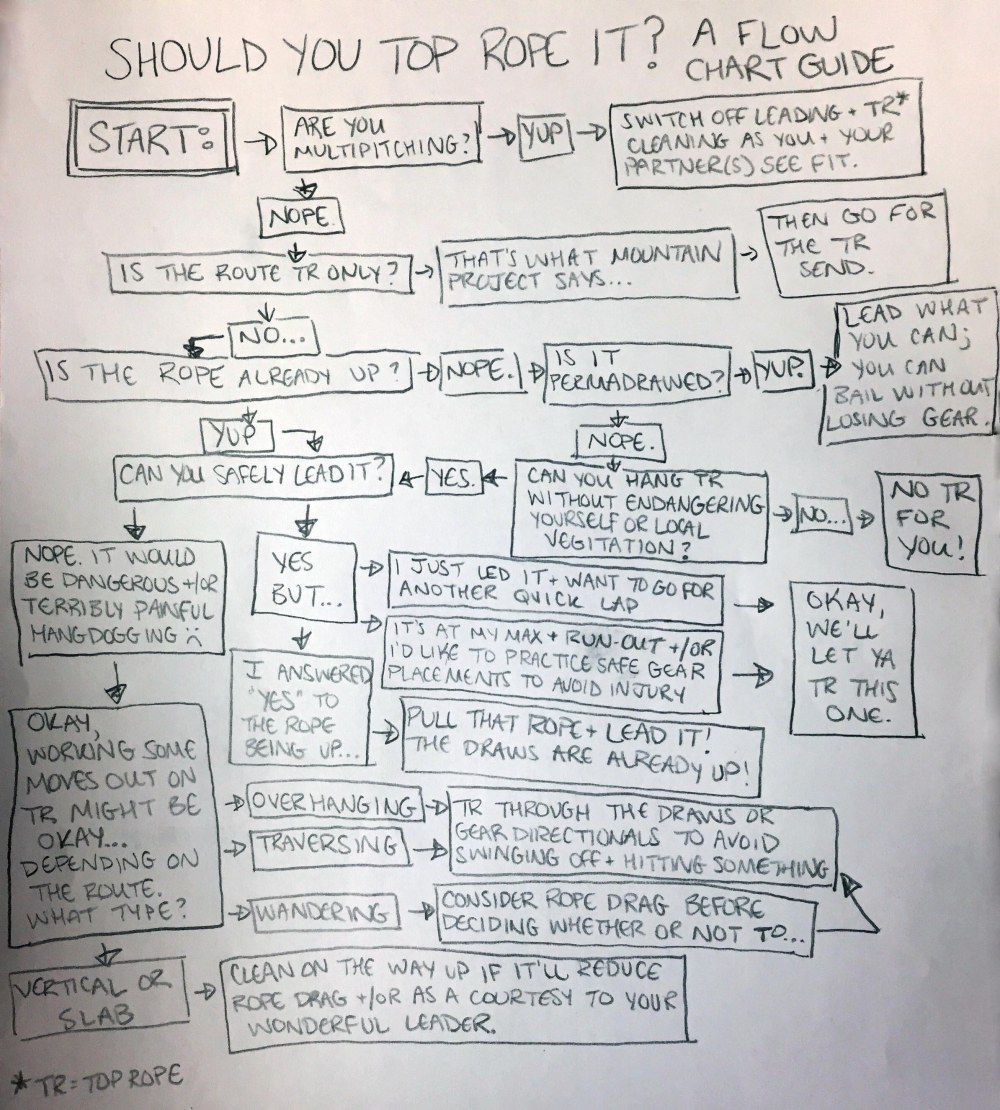 SHOULD YOU TOP ROPE IT? A FLOW
CHART GUIDE
START:
ARE YOU
MULTIPITCHING?
YUP
SWITCH OFF LEADING + TR*
CLEANING AS YOU + YOUR
PARTNER(S) SEE FIT.
NOPE.
IS THE ROUTE TR ONLY?
THAT'S WHAT MOUNTAIN
PROJECT SAYS...
THEN GO FOR
THE TR
SEND.
NO...
IS THE ROPE ALREADY UP?
NOPE.
IS IT
PERMADRAWED?
YUP.
LEAD WHAT
YOU CAN;
YOU CAN
BAIL WITHOUT
LOSING GEAR.
YUP
NOPE.
CAN YOU SAFELY LEAD IT?
YES.
CAN YOU HANG TR
WITHOUT ENDANGERING
YOURSELF OR LOCAL
VEGITATION?
NO...
NO TR
FOR
YOU!
NOPE. IT WOULD
BE DANGEROUS +/OR
TERRIBLY PAINFUL
HANGDOGGING :(
YES
BUT...
I JUST LED IT + WANT TO GO FOR
ANOTHER QUICK LAP
IT'S AT MY MAX + RUN-OUT +/OR
I'D LIKE TO PRACTICE SAFE GEAR
PLACEMENTS TO AVOID INJURY
OKAY,
WE'LL
LET YA
TR THIS
ONE.
I ANSWERED
"YES" TO
THE ROPE
BEING UP...
PULL THAT ROPE + LEAD IT!
THE DRAWS ARE ALREADY UP!
OKAY,
WORKING SOME
MOVES OUT ON
TR MIGHT BE
OKAY...
DEPENDING ON
THE ROUTE.
WHAT TYPE?
OVERHANGING
TRAVERSING
TR THROUGH THE DRAWS OR
GEAR DIRECTIONALS TO AVOID
SWINGING OFF + HITTING SOMETHING
WANDERING
CONSIDER ROPE DRAG BEFORE
DECIDING WHETHER OR NOT TO...
VERTICAL OR
SLAB
CLEAN ON THE WAY UP IF IT'LL REDUCE
ROPE DRAG +/OR AS A COURTESY TO YOUR
WONDERFUL LEADER.
* TR = TOP ROPE